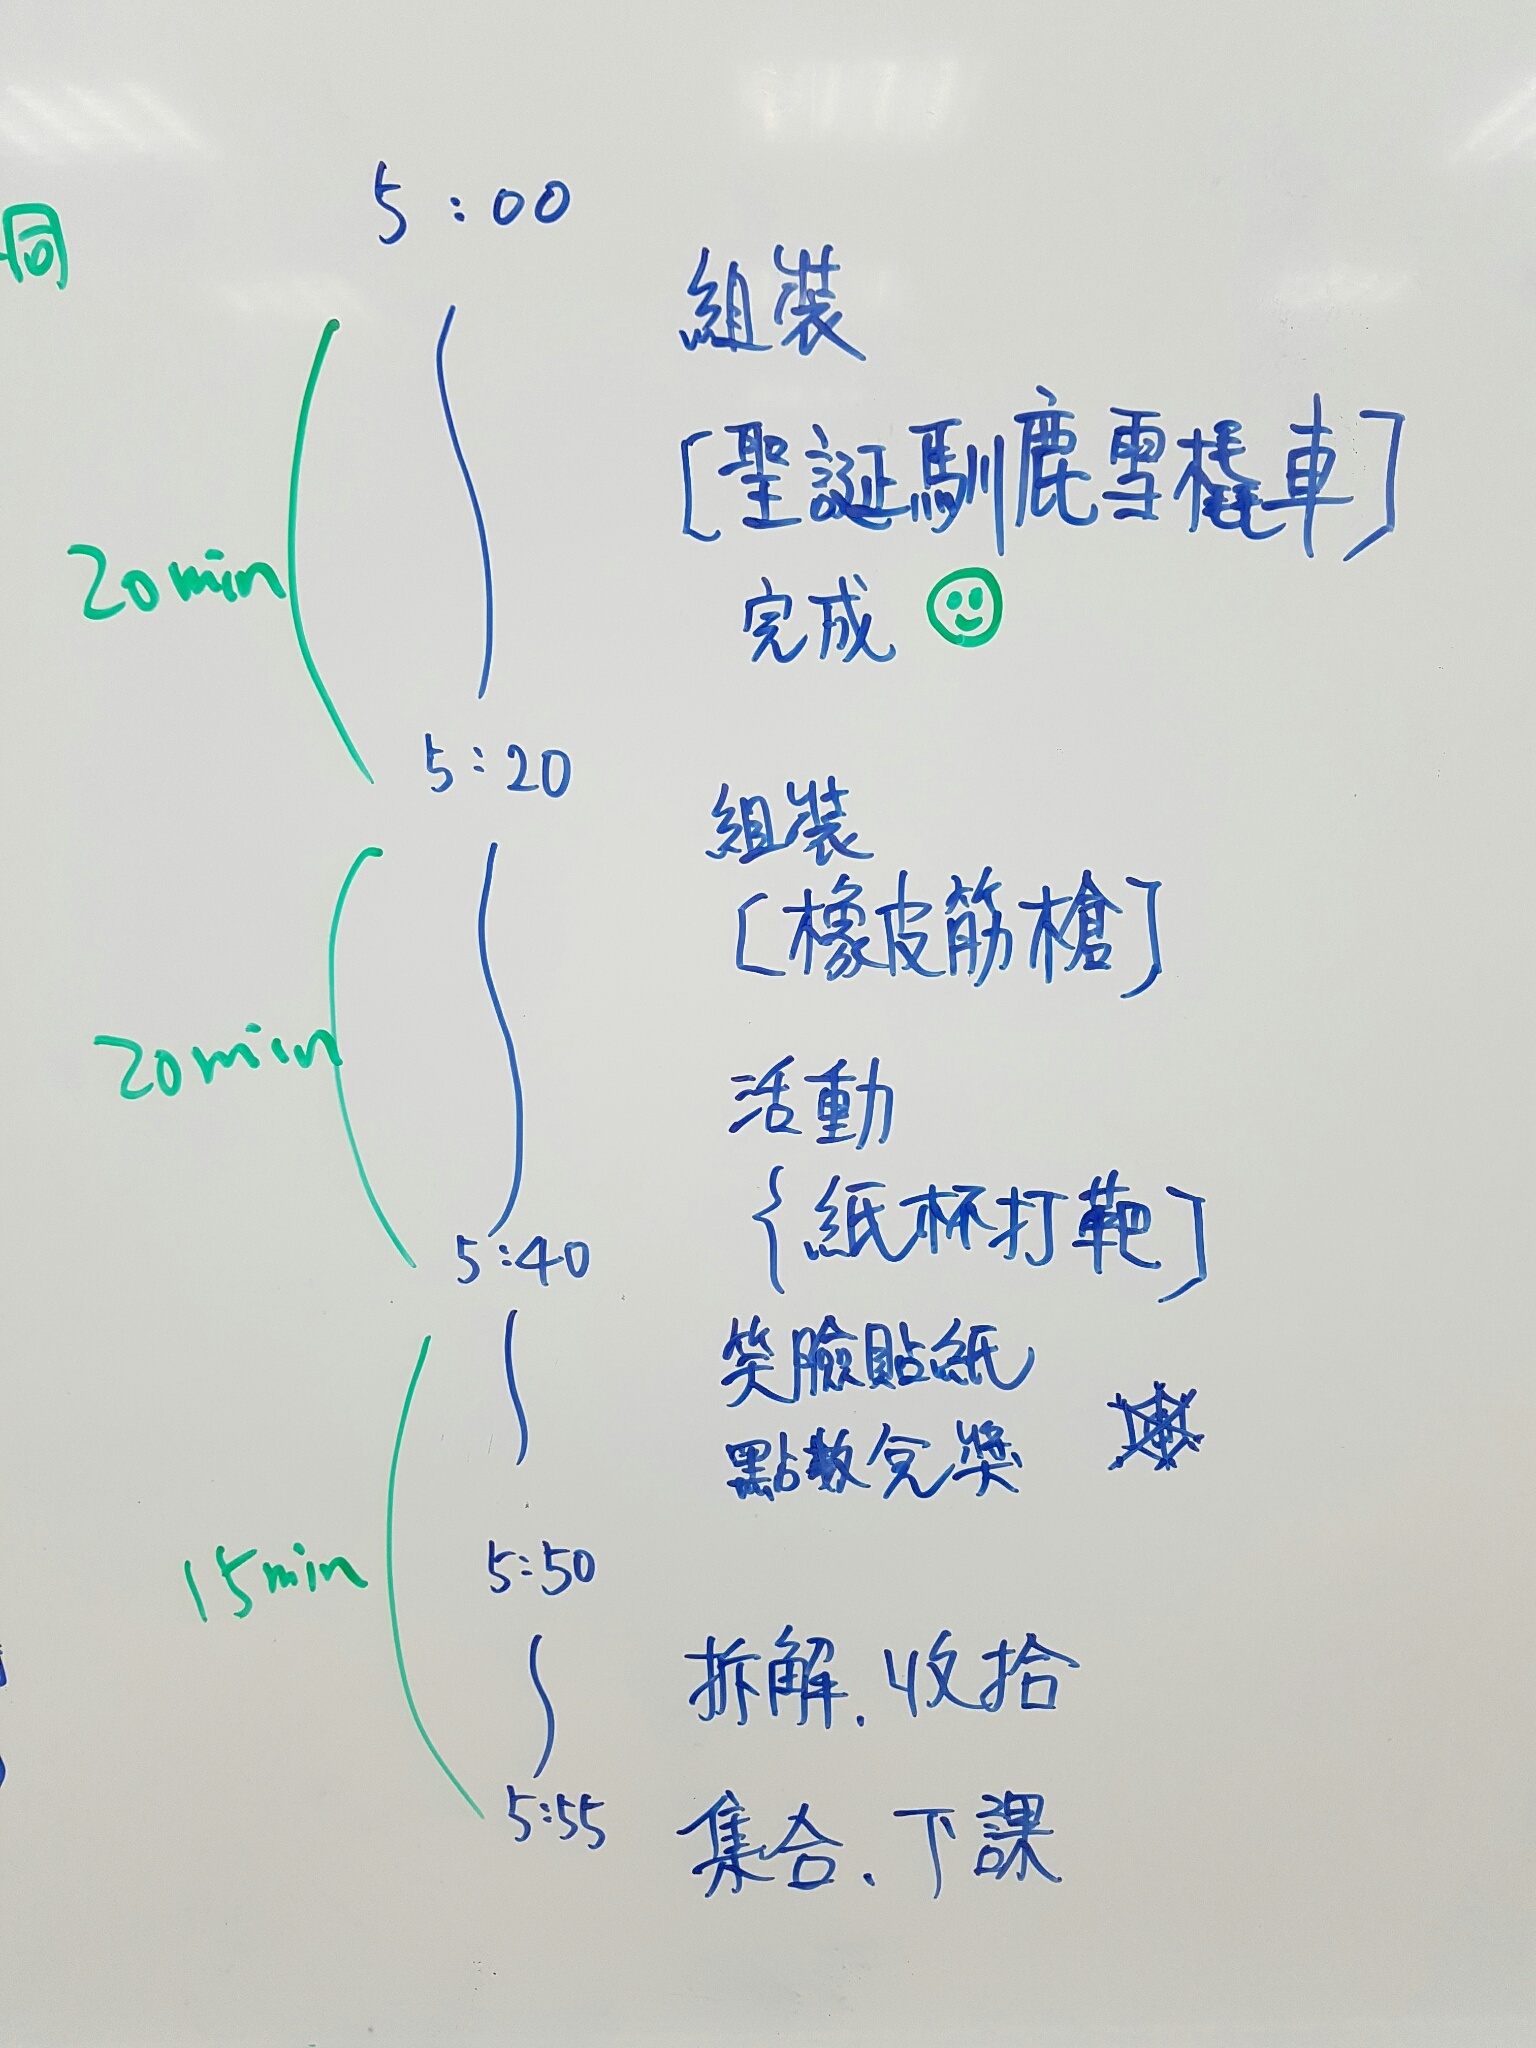 同
5:00
組裝
[聖誕馴鹿雪橇車]
20min
完成
5:20
組裝
[橡皮筋槍]
20min
活動
{紙杯打靶]
5:40
笑臉貼紙
點數兌獎
5:50
15min
拆解.收拾
5:55 集合.下課